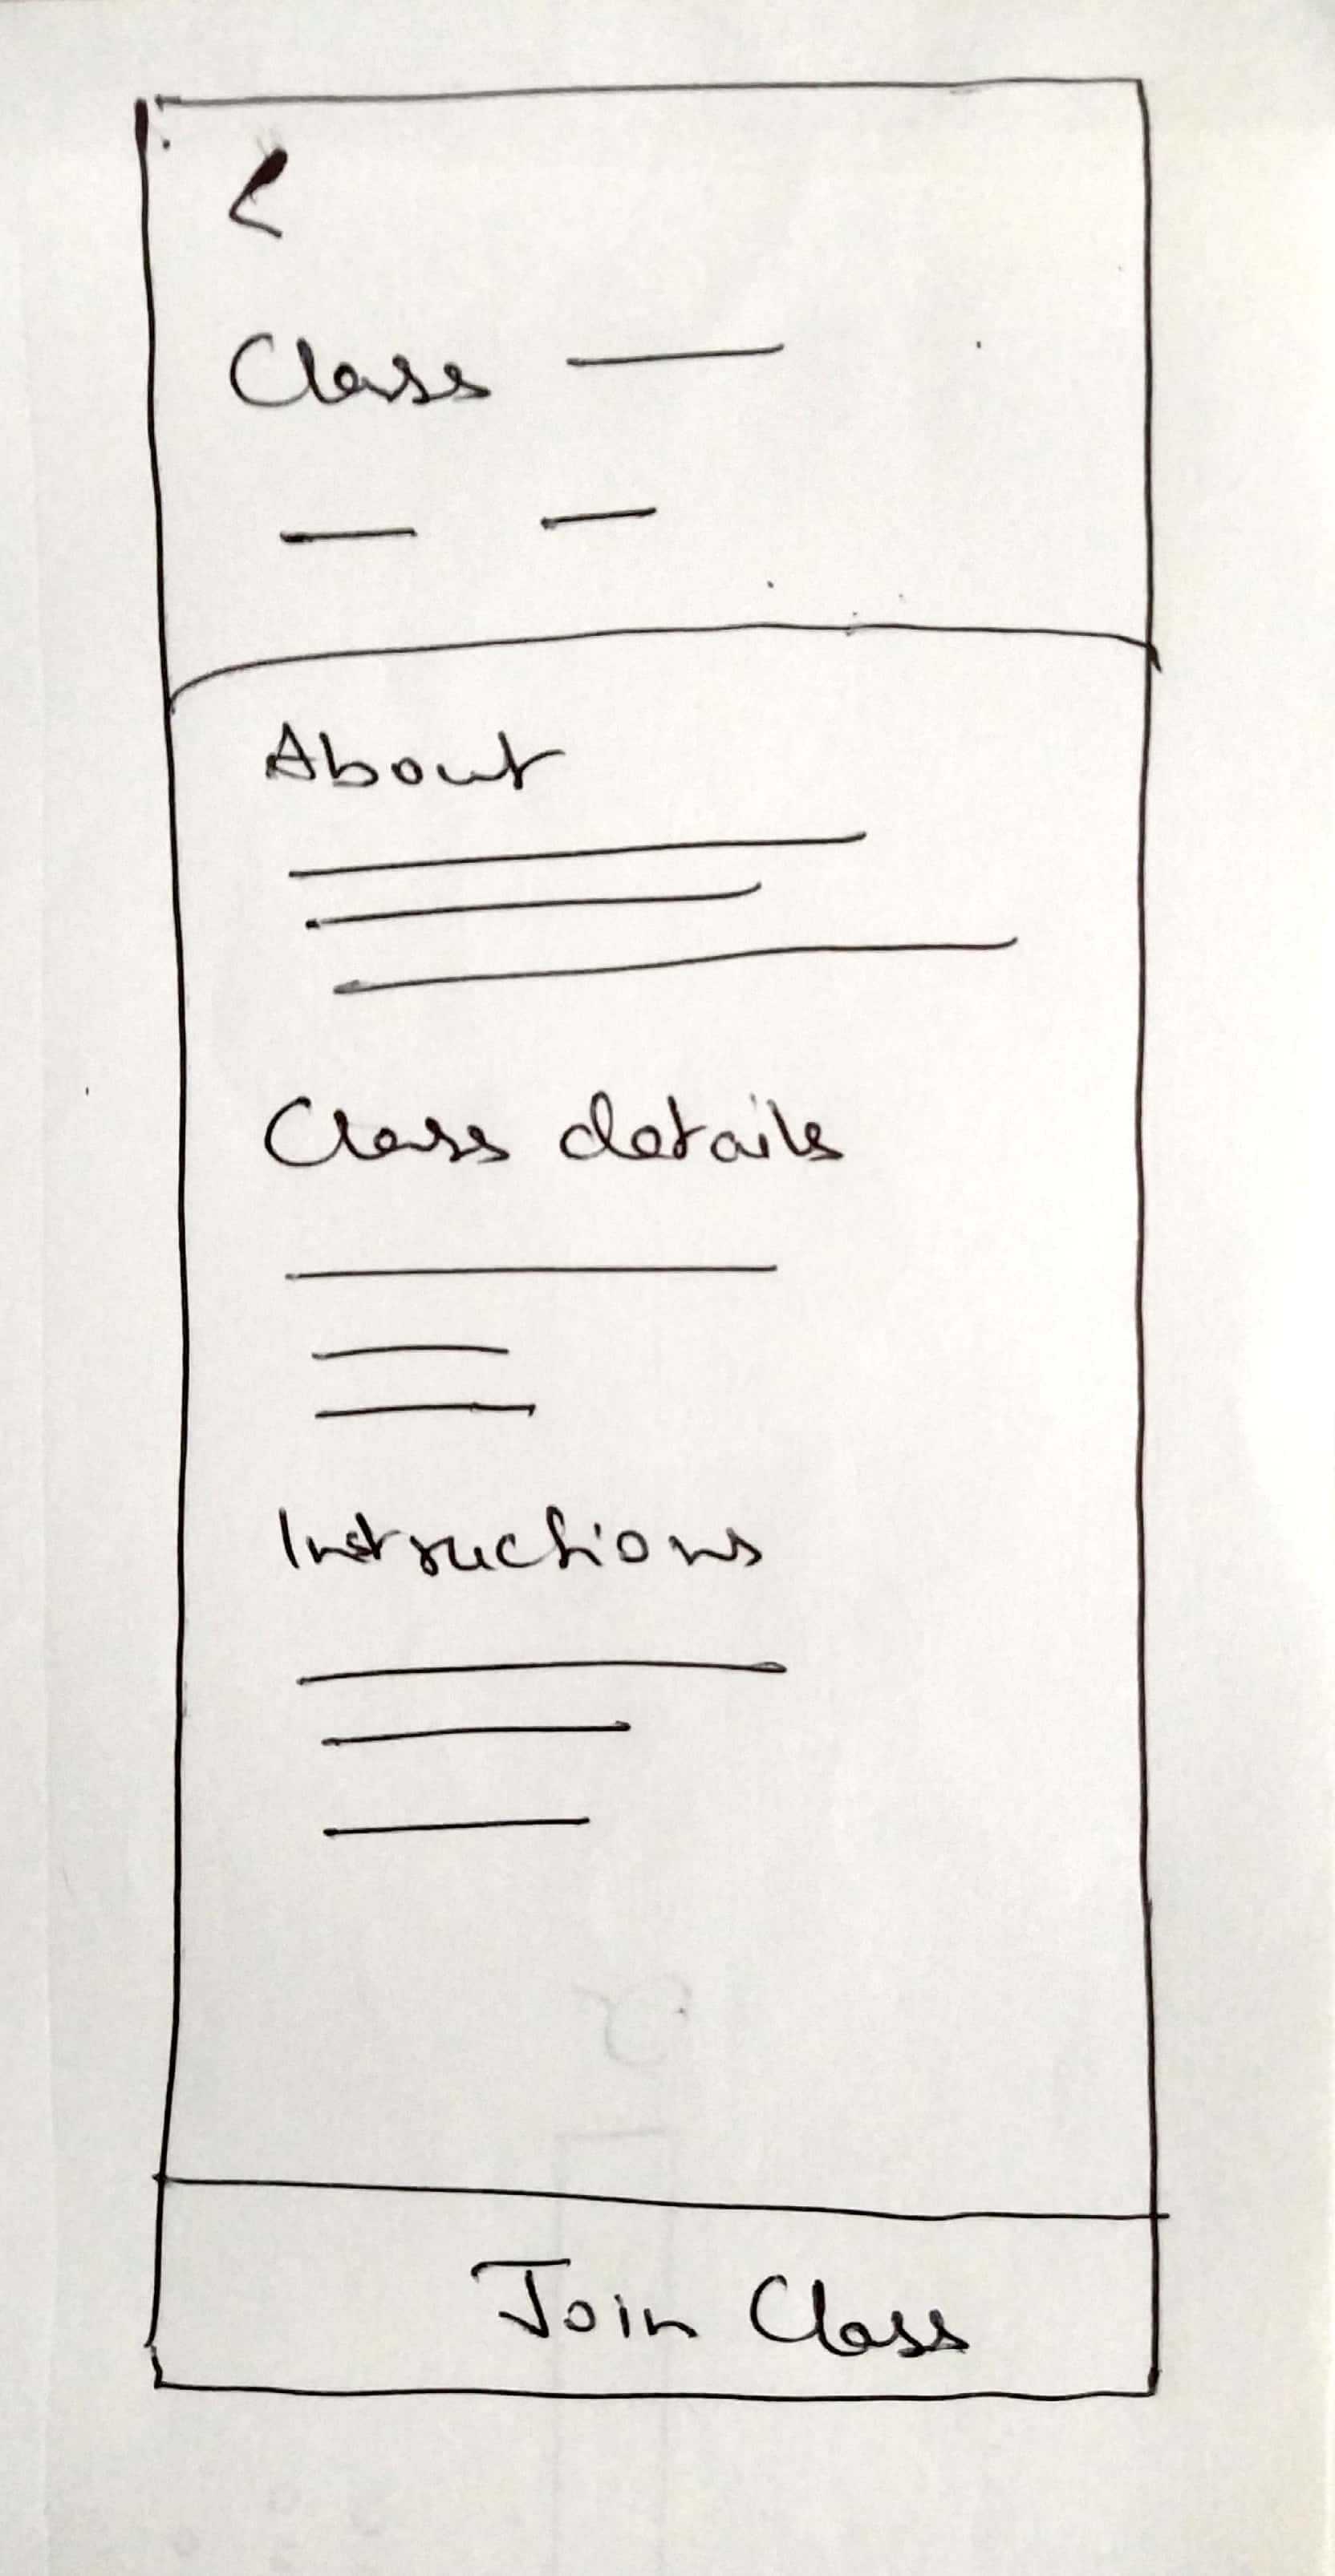 <
Class
About
Class details
Instructions
Join Class